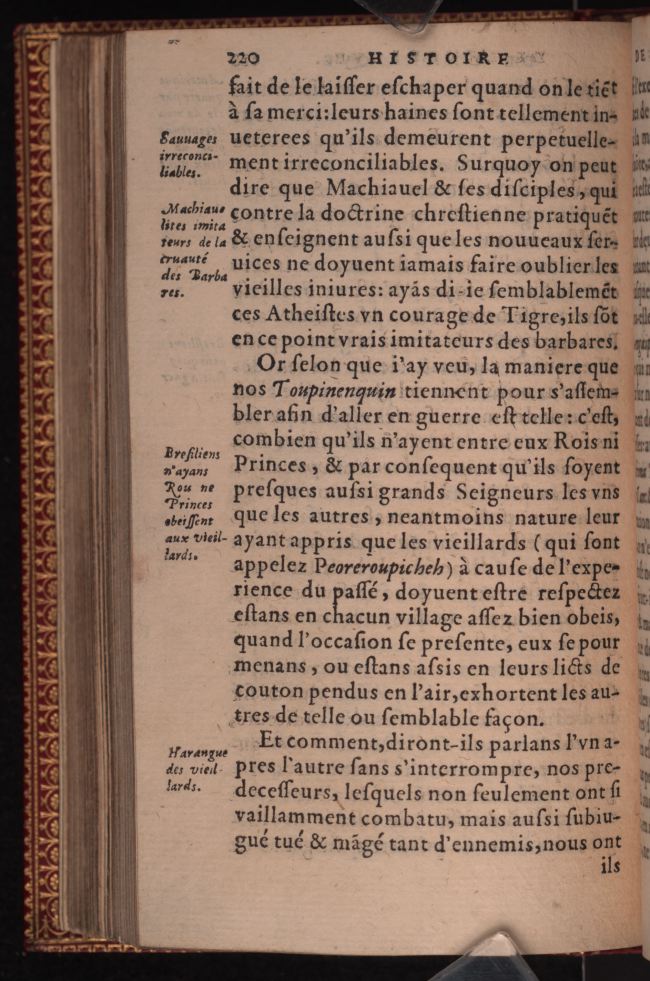 220 HISTOIRE
fait de le laiſſer eſchaper quand on le tiẽt
à ſa merci: leurs haines ſont tellement in-
ueterees qu'ils demeurent perpetuelle-
ment irreconciliables. Surquoy on peut
dire que Machiauel & ſes diſciples, qui
contre la doctrine chreſtienne pratiquẽt
& enſeignent auſsi que les nouueaux ſer-
uices ne doyuent iamais faire oublier les
vieilles iniures: ayãs di-ie ſemblablemẽt
ces Atheiſtes vn courage de Tigre, ils ſõt
en ce point vrais imitateurs des barbares.
Or ſelon que i'ay veu, la maniere que
nos Toupinenquin tiennent pour s'aſſem-
bler afin d'aller en guerre eſt telle: c'eſt,
combien qu'ils n'ayent entre eux Rois ni
Princes, & par conſequent qu'ils ſoyent
preſques auſsi grands Seigneurs les vns
que les autres, neantmoins nature leur
ayant appris que les vieillards (qui ſont
appelez Peoreroupicheh) à cauſe de l'expe-
rience du paſſé, doyuent eſtre reſpectez
eſtans en chacun village aſſez bien obeis,
quand l'occaſion ſe preſente, eux ſe pour
menans, ou eſtans aſsis en leurs licts de
couton pendus en l'air, exhortent les au-
tres de telle ou ſemblable façon.
Et comment, diront-ils parlans l'vn a-
pres l'autre ſans s'interrompre, nos pre-
deceſſeurs, leſquels non ſeulement ont ſi
vaillamment combatu, mais auſsi ſubiu-
gué tué & mãgé tant d'ennemis, nous ont
ils
Sauuages
irreconci-
liables.
Machiaue
liſtes imita
teurs de la
cruauté
des Barba
res.
Breſiliens
n'ayans
Rou ne
Princes
obeiſſent
aux vieil-
lards.
Harangue
des vieil-
lards.